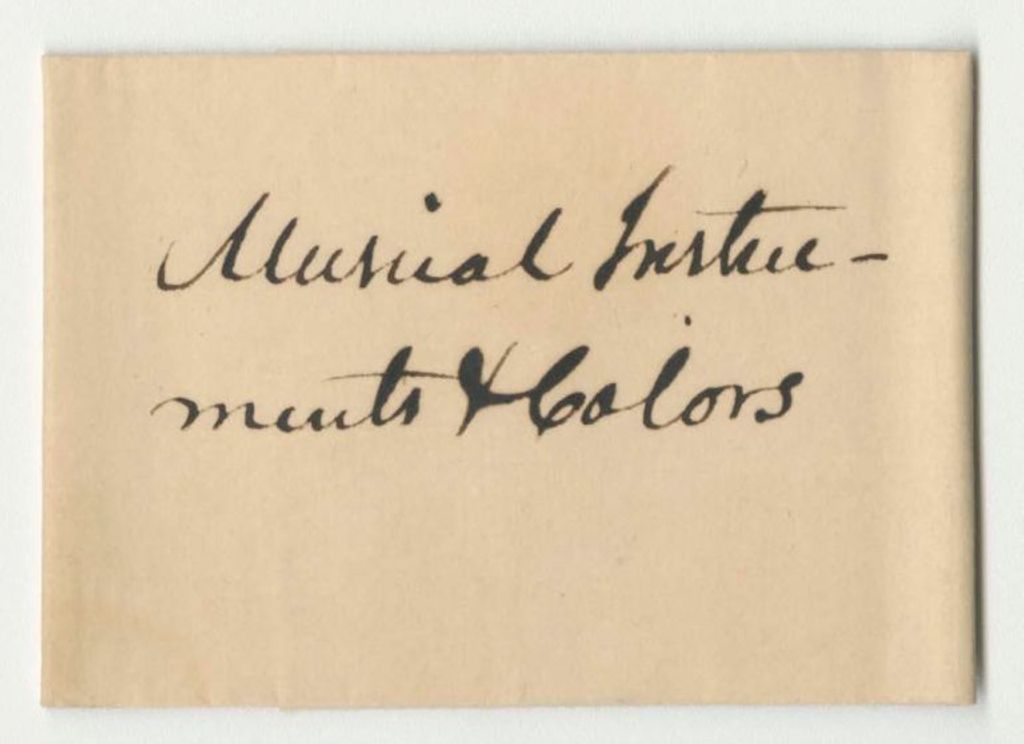 Musical Instru-
ments & Colors